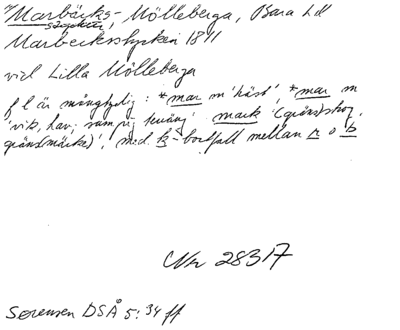 "Marbäcks-, Mölleberga, Bara hd
stycken,
Marbecksstycken 1811
vid Lilla Mölleberga
f l är mångtydig: *mar m 'häst', *mar m
'vik, hav; sumpig terräng' mark '(gräns)skog,
gräns(märke)', med k-bortfall mellan r o b
CNr 28317
Sørensen DSÅ 5:34 ff